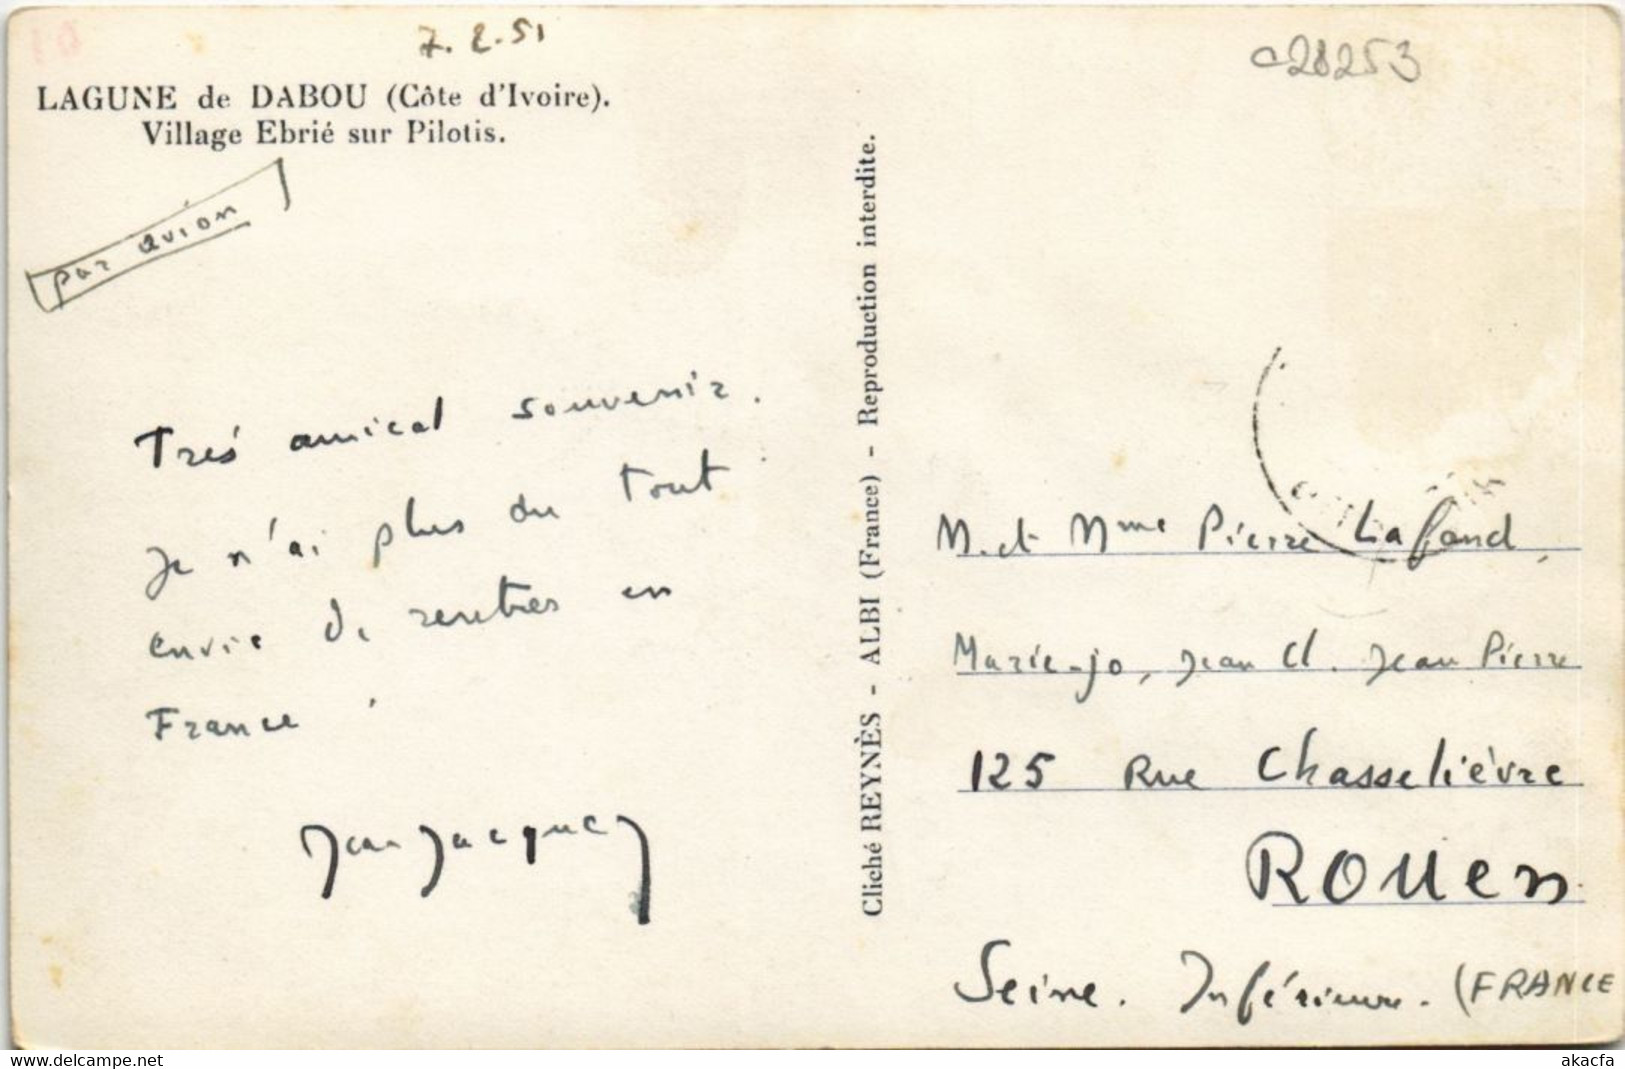 7.2.51
c28253
LAGUNE de DABOU (Côte d'Ivoire).
Village Ebrié sur Pilotis.
par avion
Très amical souvenir.
Je n'ai plus du tout
envie de rentrer en
France
Jean Jacques
Cliché REYNÈS - ALBI (France) - Reproduction interdite.
M. et Mme Pierre Lafond,
Marie-jo, Jean Cl. Jean Pierre
125 Rue Chasselièvre
ROUEN
Seine. Inférieure. (FRANCE
www.delcampe.net
akacfa